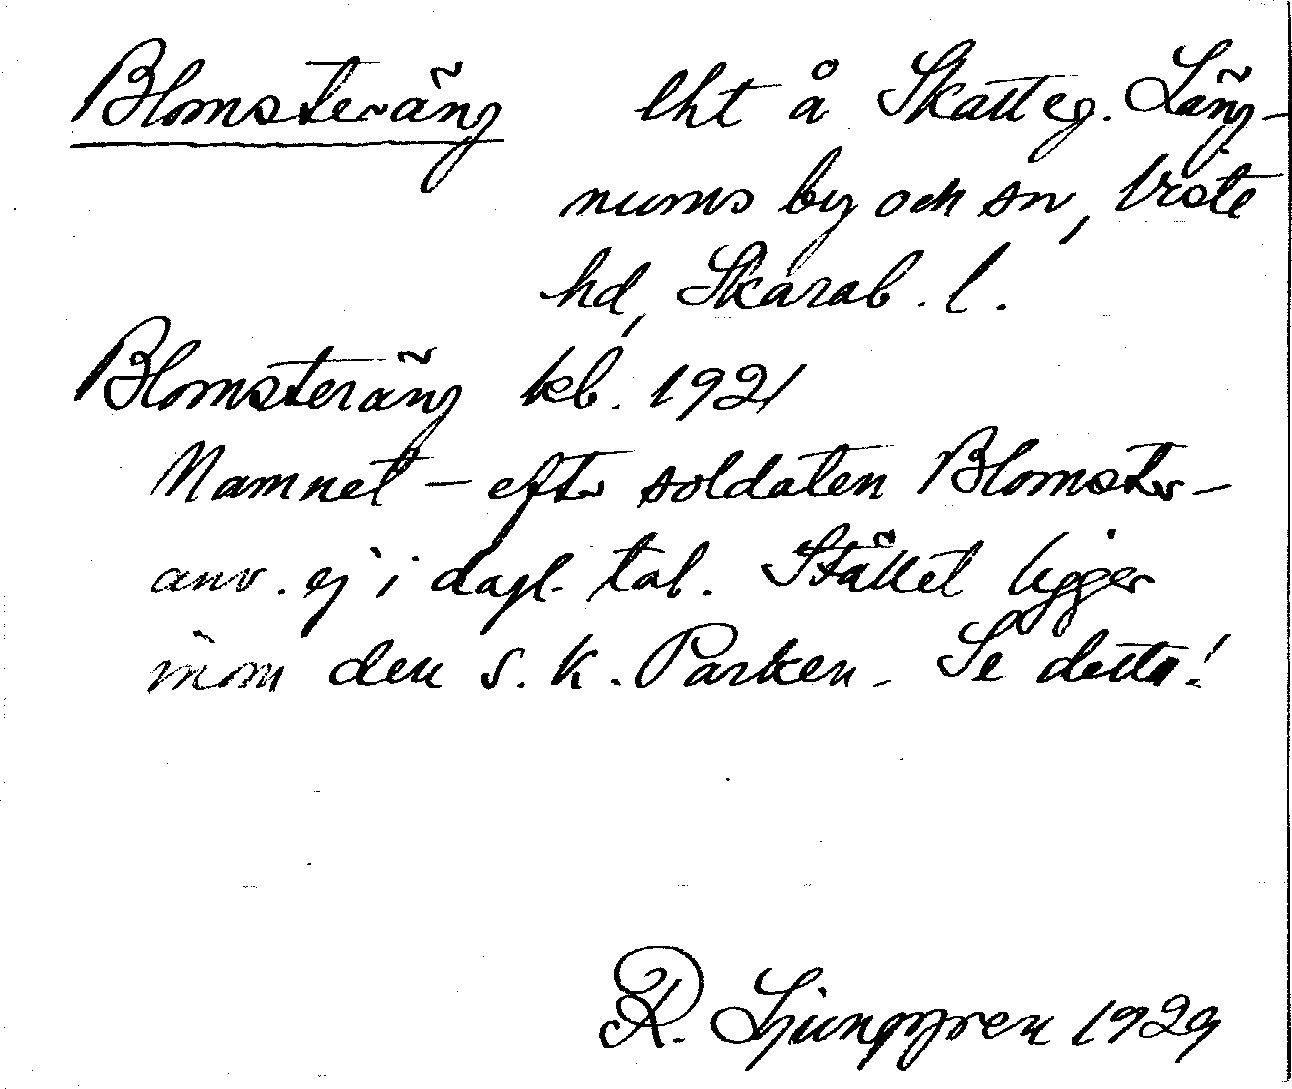 Blomsteräng lht å Skatteg. Läng-
nums by och sn, Viste
hd, Skarab. l.
Blomsteräng kb. 1921
Namnet – efter soldaten Blomster –
anv. ej i dagl. tal. Stället ligger
inom den s.k. Parken. Se detta!
R. Ljunggren 1929